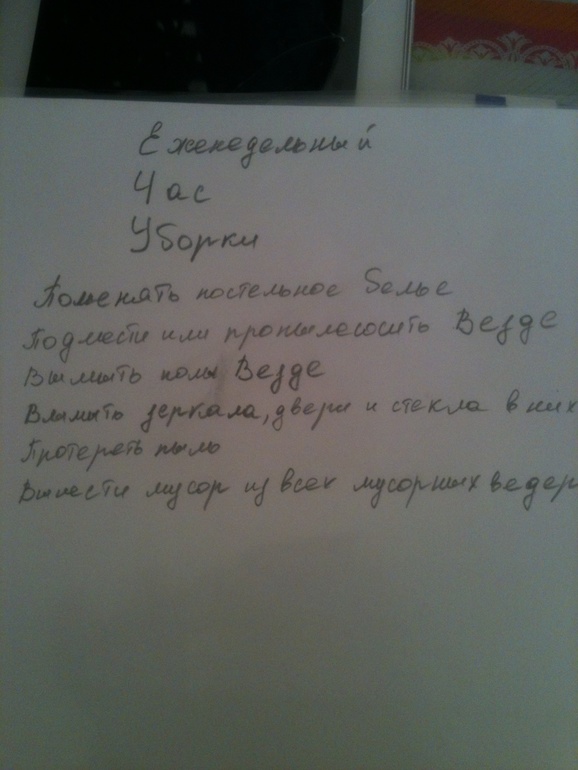 Еженедельный
Час
Уборки
Поменять постельное белье
Подмести или пропылесосить Везде
Вымыть полы Везде
Вымыть зеркала, двери и стекла в них
Протереть пыль
Вынести мусор из всех мусорных ведер